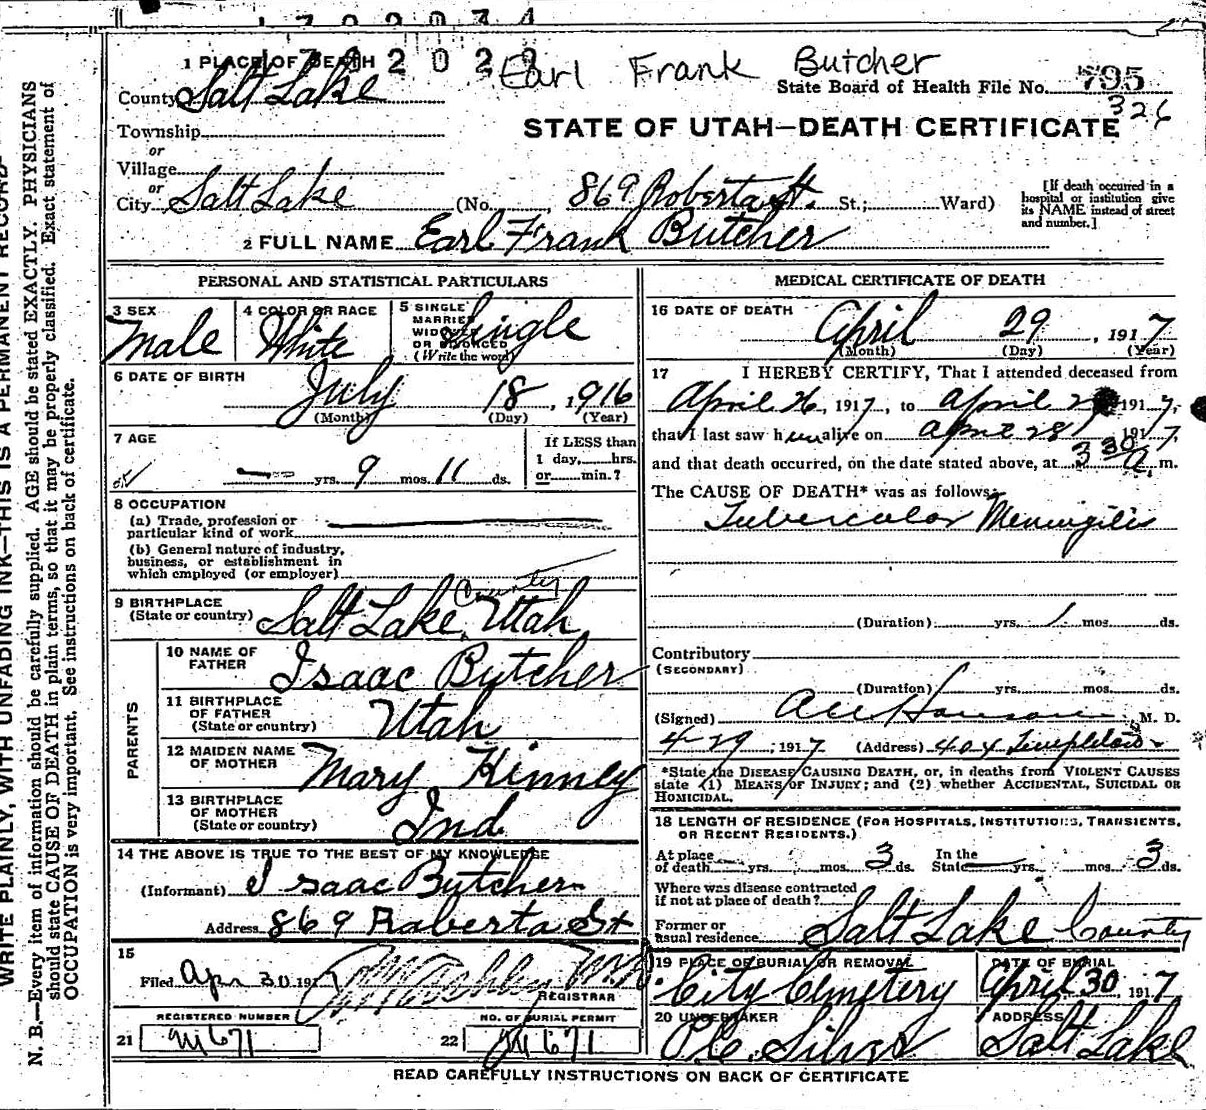 1 PLACE OF DEATH
Earl Frank Butcher
County Salt Lake
State Board of Health File No. 795
326
Township
or
STATE OF UTAH—DEATH CERTIFICATE
Village
or
City Salt Lake (No. 869 Roberta St. St.; Ward)
[If death occurred in a hospital or institution give its NAME instead of street and number.]
2 FULL NAME Earl Frank Butcher
PERSONAL AND STATISTICAL PARTICULARS
3 SEX
Male
4 COLOR OR RACE
White
5 SINGLE MARRIED WIDOWED OR DIVORCED
(Write the word)
Single
6 DATE OF BIRTH
July 18, 1916
(Month) (Day) (Year)
7 AGE
— yrs. 9 mos. 11 ds.
If LESS than
1 day, hrs.
or min.?
8 OCCUPATION
(a) Trade, profession or
particular kind of work
(b) General nature of industry,
business, or establishment in
which employed (or employer)
9 BIRTHPLACE
(State or country) Salt Lake County, Utah
PARENTS
10 NAME OF
FATHER Isaac Butcher
11 BIRTHPLACE
OF FATHER
(State or country) Utah
12 MAIDEN NAME
OF MOTHER Mary Kinney
13 BIRTHPLACE
OF MOTHER
(State or country) Ind.
14 THE ABOVE IS TRUE TO THE BEST OF MY KNOWLEDGE
(Informant) Isaac Butcher
Address 869 Roberta St
15
Filed Apr 30 1917
REGISTRAR
REGISTERED NUMBER
21 M671
NO. OF BURIAL PERMIT
22 M671
MEDICAL CERTIFICATE OF DEATH
16 DATE OF DEATH
April 29, 1917
(Month) (Day) (Year)
17 I HEREBY CERTIFY, That I attended deceased from
April 26, 1917, to April 1917,
that I last saw him alive on April 28, 1917,
and that death occurred, on the date stated above, at 3 30 a. m.
The CAUSE OF DEATH* was as follows:
Tubercular Meningitis
(Duration) yrs. 1 mos. ds.
Contributory
(SECONDARY)
(Duration) yrs. mos. ds.
(Signed) M. D.
4-29, 1917 (Address) 404 Templeton
*State the DISEASE CAUSING DEATH, or, in deaths from VIOLENT CAUSES
state (1) MEANS OF INJURY; and (2) whether ACCIDENTAL, SUICIDAL OR
HOMICIDAL.
18 LENGTH OF RESIDENCE (FOR HOSPITALS, INSTITUTIONS, TRANSIENTS,
OR RECENT RESIDENTS.)
At place
of death yrs. mos. 3 ds. In the
State yrs. mos. 3 ds.
Where was disease contracted
if not at place of death?
Former or
usual residence Salt Lake County
19 PLACE OF BURIAL OR REMOVAL
City Cemetery
DATE OF BURIAL
April 30 1917
20 UNDERTAKER
ADDRESS
Salt Lake
READ CAREFULLY INSTRUCTIONS ON BACK OF CERTIFICATE
WRITE PLAINLY, WITH UNFADING INK—THIS IS A PERMANENT RECORD
N. B.—Every item of information should be carefully supplied. AGE should be stated EXACTLY. PHYSICIANS
should state CAUSE OF DEATH in plain terms, so that it may be properly classified. Exact statement of
OCCUPATION is very important. See instructions on back of certificate.